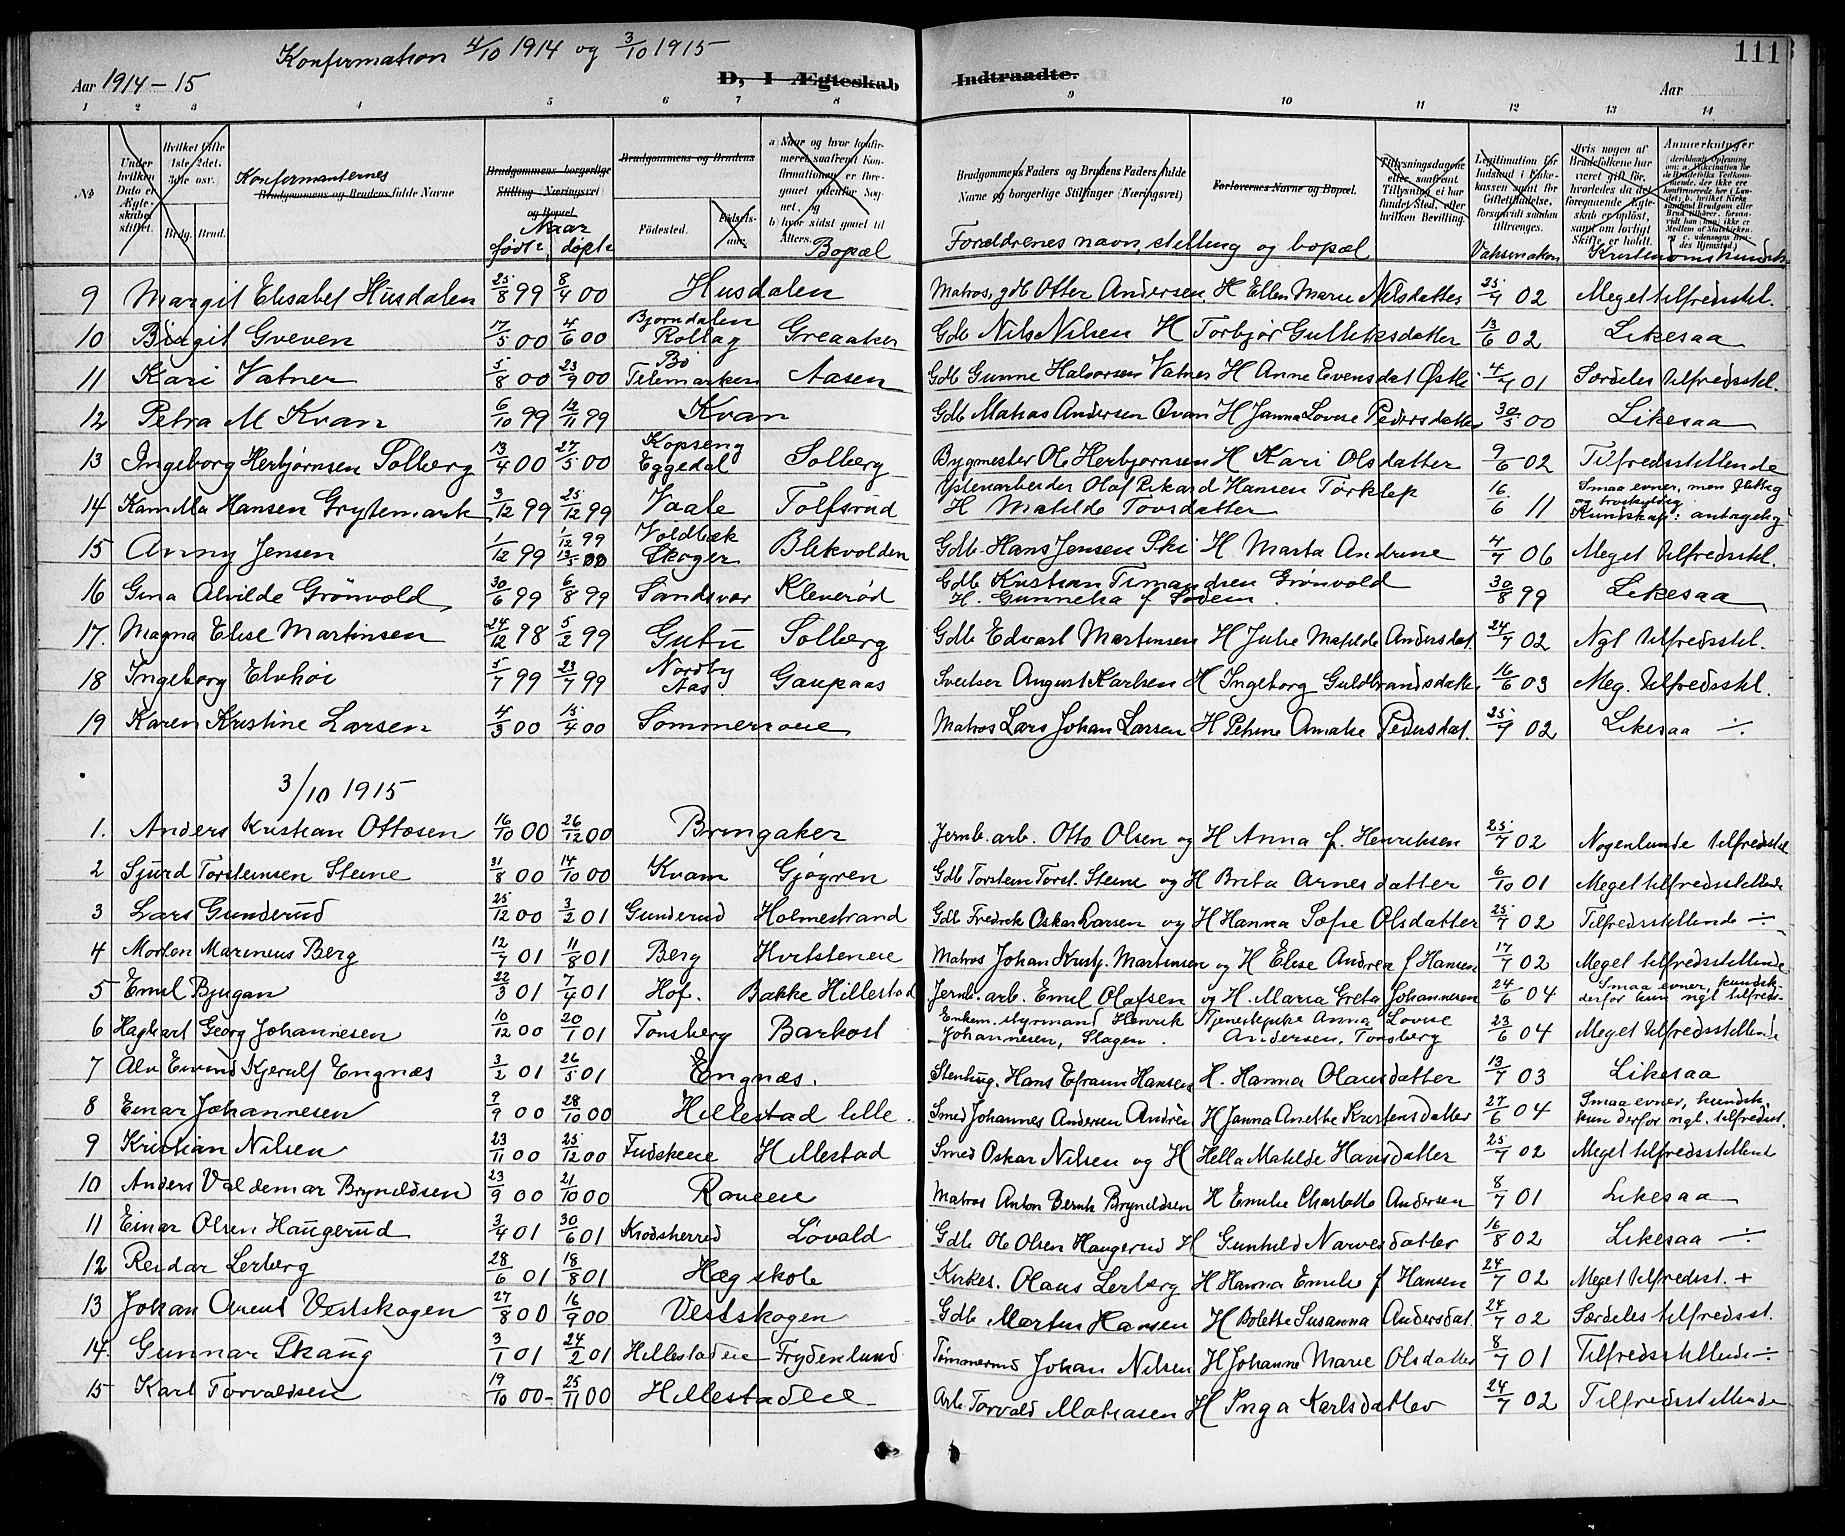 Konfirmation 4/10 1914 og 3/10 1915
111
Aar 1914-15 D, I Ægteskab Indtraadte. Aar
1 2 3 4 5 6 7 8 9 10 11 12 13 14
No Under hvilken Dato er Ægteskabet stiftet. Hvilket Gifte (1ste, 2det, 3die osv.) Brdg. Brud. Konfirmanternes Brudgommens og Brudens fulde Navne Brudgommens borgerlige Stilling (Næringsvei) og Bopæl Naar født, døpt Brudgommens og Brudens Fødested. Fødsels-aar. a) Naar og hvor konfirmeret, saafremt Konfirmationen er foregaaet udenfor Sognet, og b) hvor sidst gaaet til Alters. Bopæl
Brudgommens Faders og Brudens Faders fulde Navne og borgerlige Stillinger (Næringsvei) Forlovernes Navne og Bopæl. Forældrenes navn, stilling og bopæl Tillysningsdagene eller saafremt Tillysning ei har fundet Sted, efter hvilken Bevilling. Vaksination Hvis nogen af Brudefolkene har været gift før, hvorledes da det foregaaende Ægteskab er opløst, samt om lovligt Skifte er holdt. Anmærkninger
9 Margit Elisabet Husdalen 25/8 99 8/4 00 Husdalen Matros, gdb Otter Andersen H Ellen Marie Nilsdatter 25/7 02 Meget tilfredsstil.
10 Birgit Gveven 17/5 00 4/6 00 Bjørndalen Rollag Greaaker Gdb Nils Nilsen H Torbjør Gulliksdatter 13/6 02 Likesaa
11 Kari Vatner 5/8 00 23/9 00 Bø Telemarken Aasen Gdb Gunne Halvorsen Vatner H Anne Evensdat Østli 4/7 01 Særdeles tilfredsstil.
12 Petra M Kvan 6/10 99 12/11 99 Kvan Gdb Matias Andersen Qvan H Janna Lovise Pedersdatter 30/5 00 Likesaa
13 Ingeborg Herbjørnsen Solberg 13/4 00 27/5 00 Kopseng Eggedal Solberg Bygmester Ole Herbjørnsen H Kari Olsdatter 9/6 02 Tilfredsstillende
14 Kamilla Hansen Grytemark 3/12 99 25/12 99 Vaale Tolfsrud Ystenarbeider Olaf Rikard Hansen Tørklep H Matilde Tovsdatter 16/6 11 Smaa evner, men flittig og troskyldig. Kundskap: antagelig
15 Anny Jensen 1/12 99 1/12 99 13/5 00 Voldbæk Skoger Blekvolden Gdb. Hans Jensen Ski H Marta Andrine 4/7 06 Meget tilfredsstil.
16 Gina Alvilde Grönvold 30/6 99 6/8 99 Sandsvær Kleverød Gdb Kristian Timandsen Grönvold H. Gunneha f Sodem 30/8 99 Likesaa
17. Magna Elise Martinsen 24/12 98 5/2 99 Gutu Solberg Gdb Edvart Martinsen H Julie Matilde Andersdat. 24/7 02 Ngl tilfredsstil.
18 Ingeborg Elvhøi 5/7 99 23/7 99 Nordby Aas Gaupaas Sveitser August Karlsen H Ingeborg Guldbrandsdatter 16/6 03 Meg. tilfredsstil.
19 Karen Kristine Larsen 4/3 00 15/4 00 Sommernoeie Matros Lars Johan Larsen H Petrine Amalie Pedersdat. 25/7 02 Likesaa ÷
3/10 1915
1. Anders Kristian Ottosen 16/10 00 26/12 00 Bringaker Jernb. arb. Otto Olsen og H Anna f. Henriksen 25/7 02 Nogenlunde tilfredsstil
2 Sjurd Torsteinsen Steine 31/8 00 14/10 00 Kvam Gjøgren Gdb Torstein Torst. Steine og H Brita Arnesdatter 6/10 01 Meget tilfredsstillende
3 Lars Gunderud 25/12 00 3/2 01 Gunderud Holmestrand Gdb Fredrik Oskar Larsen og H Hanna Sofie Olsdatter 25/7 02 Tilfredsstillende ÷
4 Morten Marineus Berg 12/7 01 11/8 01 Berg Hvitsteneie Matros Johan Kristj. Martinsen og H Elise Andrea f Hansen 17/7 02 Meget tilfredsstillende
5 Emil Bjugan 22/3 01 7/4 01 Hof. Bakke Hillestad Jernb. arb. Emil Olafsen og H. Maria Greta Johannesen 24/6 04 Smaa evner, kundsk. derfor kun ngl tilfreds-
6 Hagbart Georg Johannesen 10/12 00 20/1 01 Tønsberg Barkost Enkem. styrmand Henrik Johannesen, Slagen. Tjenestepike Anna Lovise Andersen, Tønsberg 23/6 04 Meget tilfredsstillende
7 Alv Eivind Kjerulf Engnæs 3/2 01 26/5 01 Engnæs. Stenhug. Hans Efraim Hansen H. Hanna Olausdatter 13/7 03 Likesaa
8 Einar Johannesen 9/9 00 28/10 00 Hillestad lille. Smed Johannes Andersen Andrée H Janna Anette Kristensdatter 27/6 04 Smaa evner, kundsk. kun derfor ngl. tilfredsst.
9 Kristian Nilsen 23/11 00 25/12 00 Fuskeeie Hillestad Smed Oskar Nilsen og H Hella Matilde Hansdatter 25/7 02 Meget tilfredsstillend
10 Anders Valdemar Bryneldsen 23/9 00 21/10 00 Raueeie Matros Anton Bernh Bryneldsen H Emilie Charlotte Andersen 8/7 01 Likesaa
11 Einar Olsen Haugerud 3/4 01 30/6 01 Krødsherred Løvald Gdb Ole Olsen Haugerud H Gunhild Narvesdatter 16/8 02 Likesaa ÷
12 Reidar Lerberg 28/6 01 18/8 01 Hægskole Kirkes. Olaus Lerberg H Hanna Emilie f Hansen 24/7 02 Meget tilfredsst. +
13 Johan Arent Vestskogen 27/8 00 16/9 00 Vestskogen Gdb Martin Hansen H Bolette Susanna Andersdat. 24/7 02 Særdeles tilfredsst.
14. Gunnar Skaug 3/1 01 24/2 01 Hillestadeie Frydenlund Tømmermd Johan Nilsen H Johanne Marie Olsdatter 8/7 01 Tilfredsstillende ÷
15 Karl Torvaldsen 19/10 00- 25/11 00 Hillestadeie Arb. Torvald Matiasen H Inga Karlsdatter 24/7 02 Tilfredsstillende